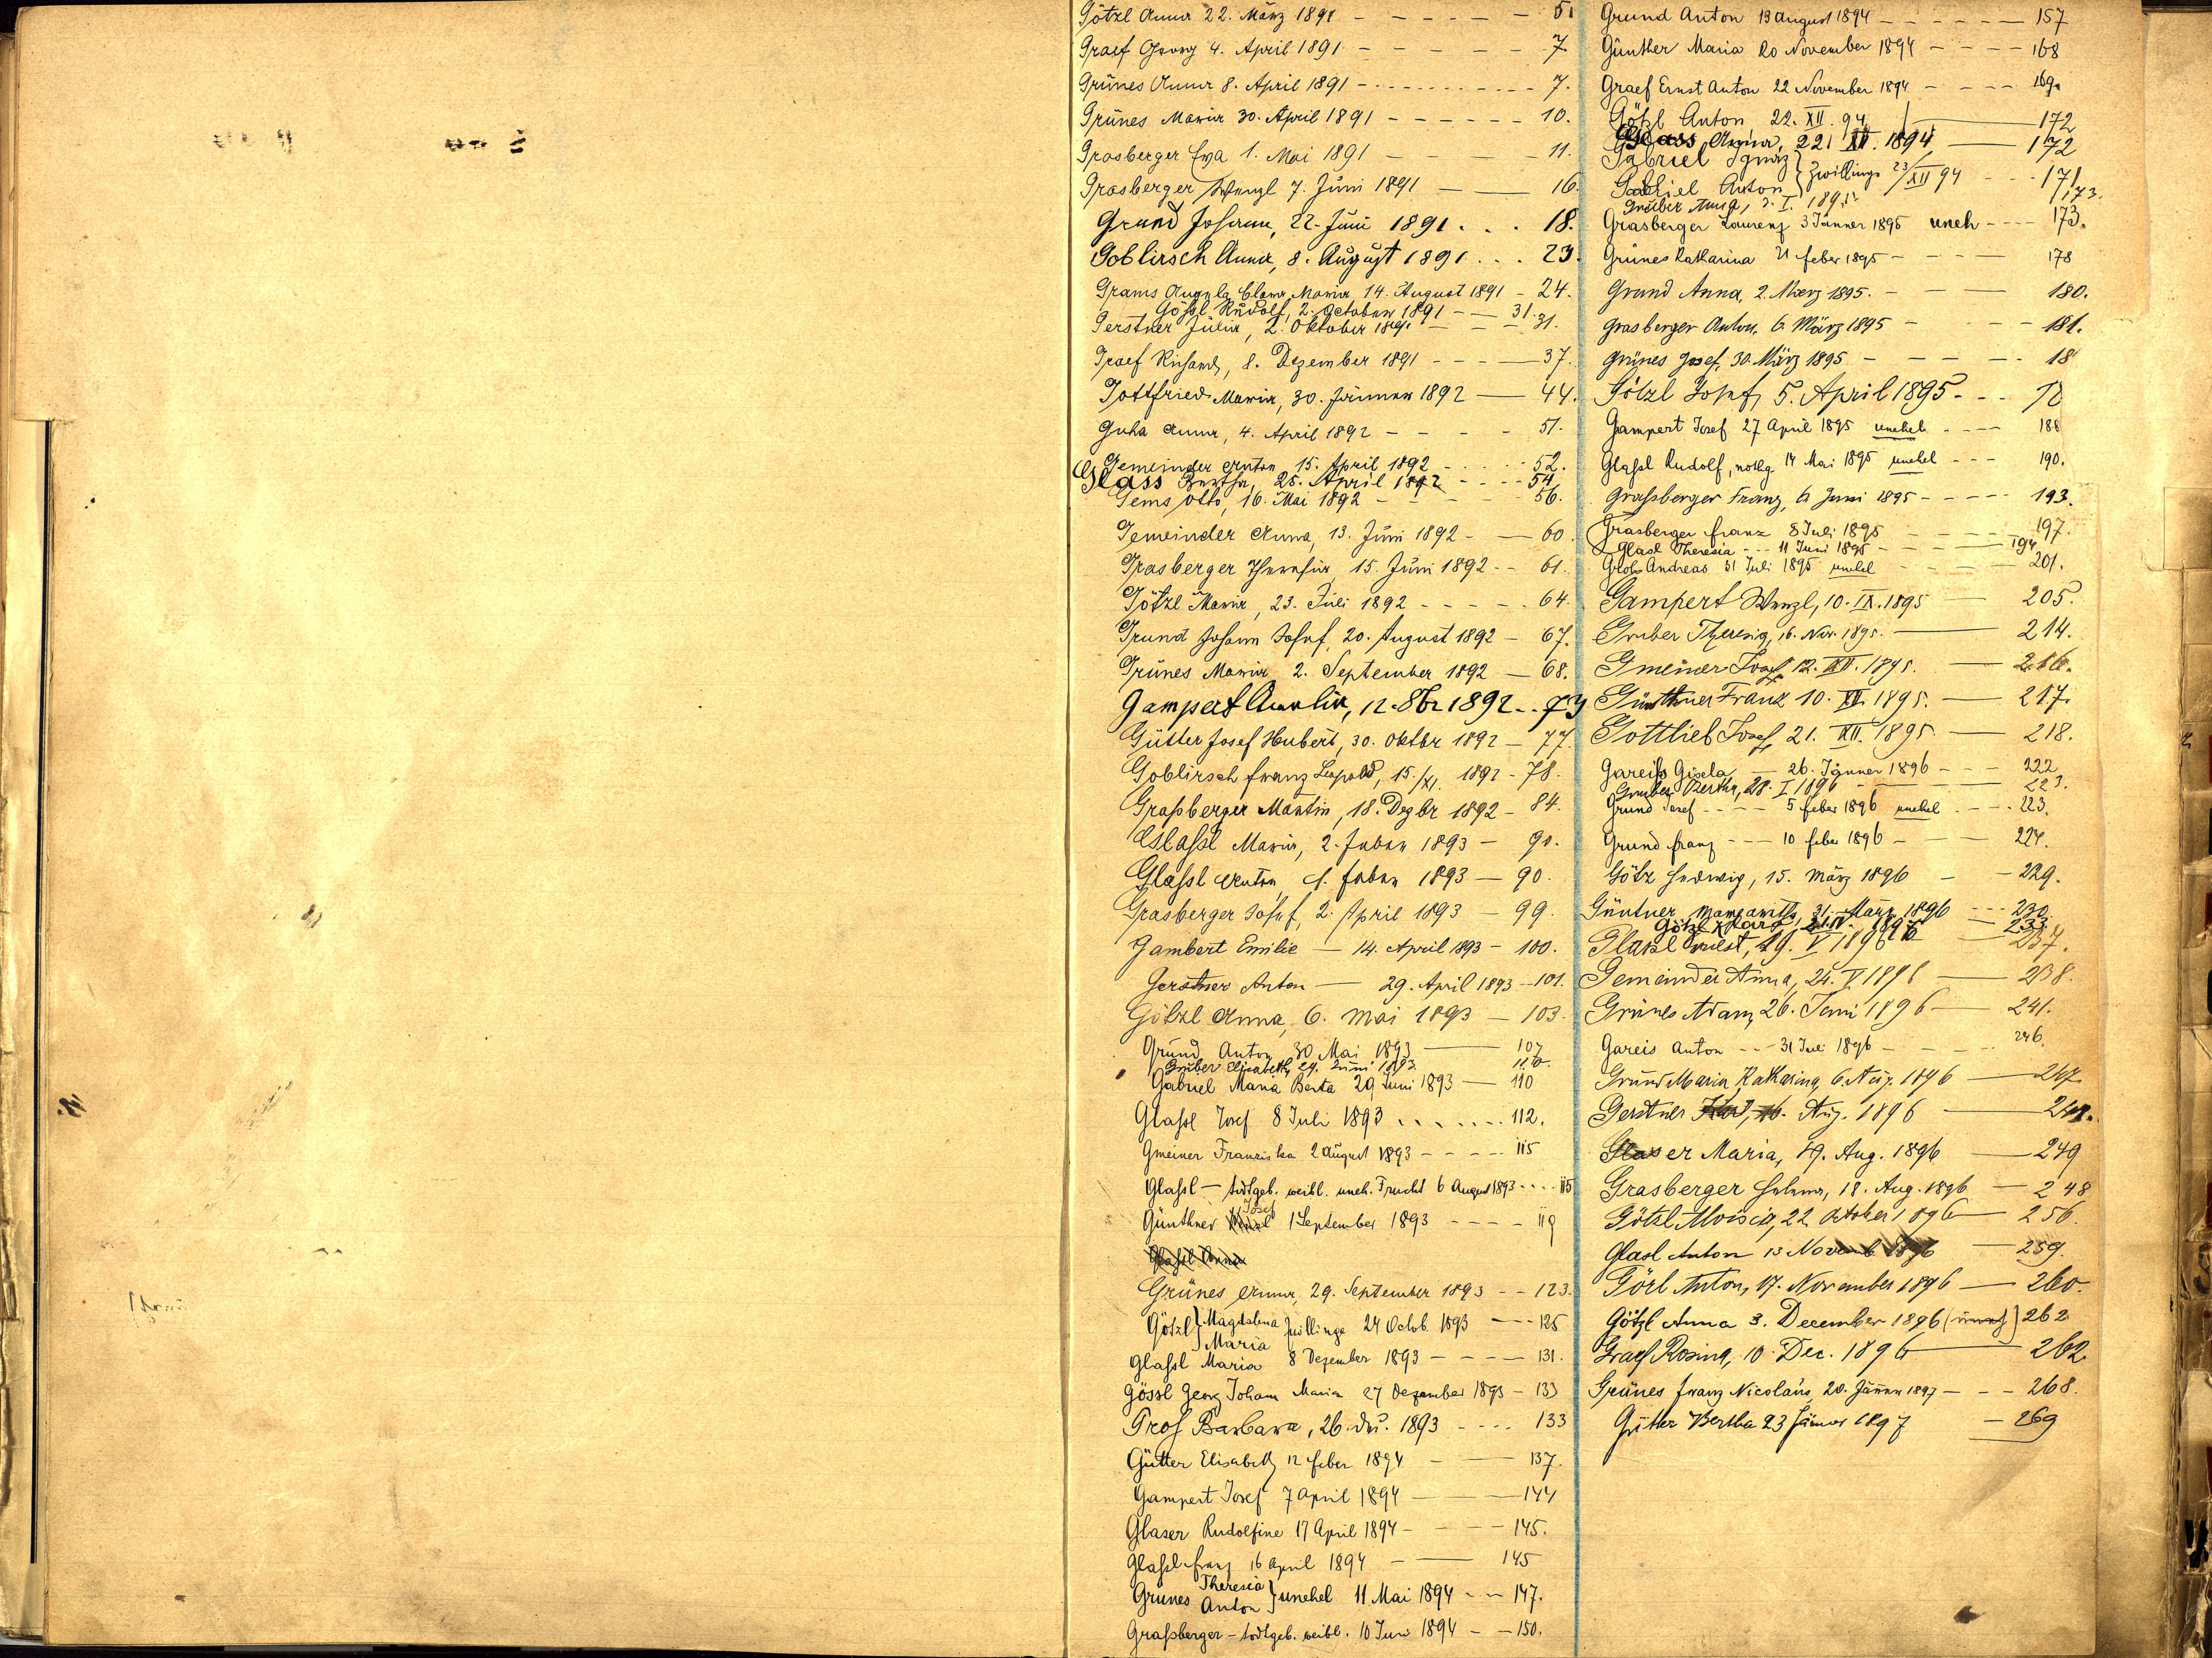 Götzl Anna 22. März 1891 - - - - - - 5.
Graef Georg 4. April 1891 - - - - - - 7
Grünes Anna 8. April 1891 - - - - - - 7.
Grünes Maria 30. April 1891 - - - - - - 10.
Grasberger Eva 1. Mai 1891 - - - - 11.
Grasberger Wenzl 7. Juni 1891 - - 16.
Grund Johann, 22. Juni 1891 . . . 18.
Goblirsch Anna, 8. August 1891 . . . 23.
Grams Angela Clara Maria 14. August 1891 - 24.
Gößl Rudolf, 2. October 1891 - - 31.
Gerstner Julia, 2. Oktober 1891 - - - 31.
Graef Richard, 8. Dezember 1891 - - - - 37.
Gottfried Maria, 30. Jänner 1892 - 44.
Guha Anna, 4. April 1892 - - - - 51.
Gemeinder Anton 15. April 1892 - - - - 52.
Glass Bertha, 28. April 1892 - - - - 54
Gems Otto, 16. Mai 1892 - - - - 56.
Gemeinder Anna, 13. Juni 1892 - - 60.
Grasberger Theresia 15. Juni 1892 - - 61.
Götzl Maria, 23. Juli 1892 - - - - - 64.
Grund Johann Josef, 20. August 1892 - 67.
Grünes Maria 2. September 1892 - 68.
Gampert Amalia, 12. 8br 1892 . . 73
Gütter Josef Hubert, 30. Oktbr 1892 - 77.
Goblirsch Franz Leopold, 15./XI. 1892 - 78.
Graßberger Martin, 18. Dezbr 1892 - 84.
Glaßl Maria, 2. Feber 1893 - 90.
Glaßl Anton, 1. Feber 1893 - 90.
Grasberger Josef, 2. April 1893 - 99.
Gambert Emilie - 14. April 1893 - 100.
Gerstner Anton - 29. April 1893 - 101.
Götzl Anna, 6. Mai 1893 - 103.
Grund Anton 30 Mai 1893 - 107
Gruber Elisabeth, 29. Juni 1893. 110.
Gabriel Maria Berta 29 Juni 1893 - 110
Glaßl Josef 8 Juli 1893 . . . . . . . 112.
Gmeiner Franziska 2 August 1893 - - - - 115
Glaßl - todtgeb. weibl. uneh. Frucht 6 August 1893 . . . . 115
Josef
Günthner 1 September 1893 - - - - 119
Glaßl Anna
Grünes Anna, 29. September 1893 - - 123.
Götzl } Magdalena Maria } Zwillinge 24 Octob. 1893 - - - 125
Glaßl Maria 8 Dezember 1893 - - - - 131.
Gössl Georg Johann Maria 27 Dezember 1893 - 133
Groß Barbara, 26. Dez. 1893 - - - - 133
Gütter Elisabeth 12 Feber 1894 - - 137.
Gampert Josef 7 April 1894 - - 144
Glaser Rudolfine 17 April 1894 - - - - 145.
Glaßl Franz 16 April 1894 - - 145
Grünes Theresia Anton } unehel 11 Mai 1894 - - 147.
Graßberger - todtgeb. weibl. 10 Juni 1894 - - 150.
Grund Anton 13 August 1894 - - - - - 157
Günther Maria 20 November 1894 - - - - 168
Graef Ernst Anton 22 November 1894 - - - - 169.
Götzl Anton 22. XII. 94 - 172
Glass 22. XII. 1894 - 172
Gabriel Ignaz
Gabriel Anton } Zwillinge 23/XII 94 - - - 171
Gruber Anna, 2. I. 1895 173.
Grasberger Laurenz 3 Jänner 1895 uneh - - - - 173.
Grünes Katharina 21 Feber 1895 - - - - 178
Grund Anna, 2. März 1895. - - 180.
Grasberger Anton, 6. März 1895 - - - - 181.
Grünes Josef, 30. März 1895 - - - - - 18
Götzl Josef, 5. April 1895 - - -
Gampert Josef 27 April 1895 unehel - - - - 188
Glaßl Rudolf, nothg. 14 Mai 1895 unehel - - - 190.
Graßberger Franz, 6 Juni 1895 - - - - - 193.
Grasberger Franz 8 Juli 1895 - - - - 197.
Glasl Theresia - - - 11 Juni 1895 - - - - 194
Groß Andreas 31 Juli 1895 unehel - - - - 201.
Gampert Wenzl, 10. IX. 1895 - 205.
Gruber Theresia, 16. Nov. 1895. - 214.
Gmeiner Josef, 12. XII. 1895. - 216.
Günthner Franz 10. XII. 1895. - 217.
Gottlieb Josef, 21. XII. 1895. - 218.
Gareiß Gisela - 26. Jänner 1896 - - - 222
Gruber Bertha, 28. I. 1896 - 223.
Grund Josef - - - - 5 Feber 1896 unehel - - - - 223.
Grund Franz - - - 10 Feber 1896 - - - 224.
Götz Hedwig, 15. März 1896 - - 229.
Güntner Margaretha, 31. März 1896 - - - 230.
Götzl Karl, IV. 1896 - 233.
Glaßl Ernest, 19. V 1896 - 237.
Gemeinder Anna, 24. V. 1896 - 238.
Grünes Adam, 26. Juni 1896 - 241.
Gareis Anton - - - 31 Juli 1896 - - - 246.
Grund Maria Katharina, 6. Aug. 1896 - 247.
Gerstner 16. Aug. 1896 -
Glaser Maria, 19. Aug. 1896 - 249
Grasberger Helena, 18. Aug. 1896 - 248
Götzl Aloisia, 22 October 1896 - 256.
Glasl Anton 13 Novemb 1896 - 259.
Görl Anton, 17. November 1896 - 260.
Götzl Anna 3. December 1896 (uneh) 262
Graef Rosina, 10. Dec. 1896 - 262.
Grünes Franz Nicolaus, 20. Jänner 1897 - - - 268.
Gütter Bertha 23 Jänner 1897 - 269